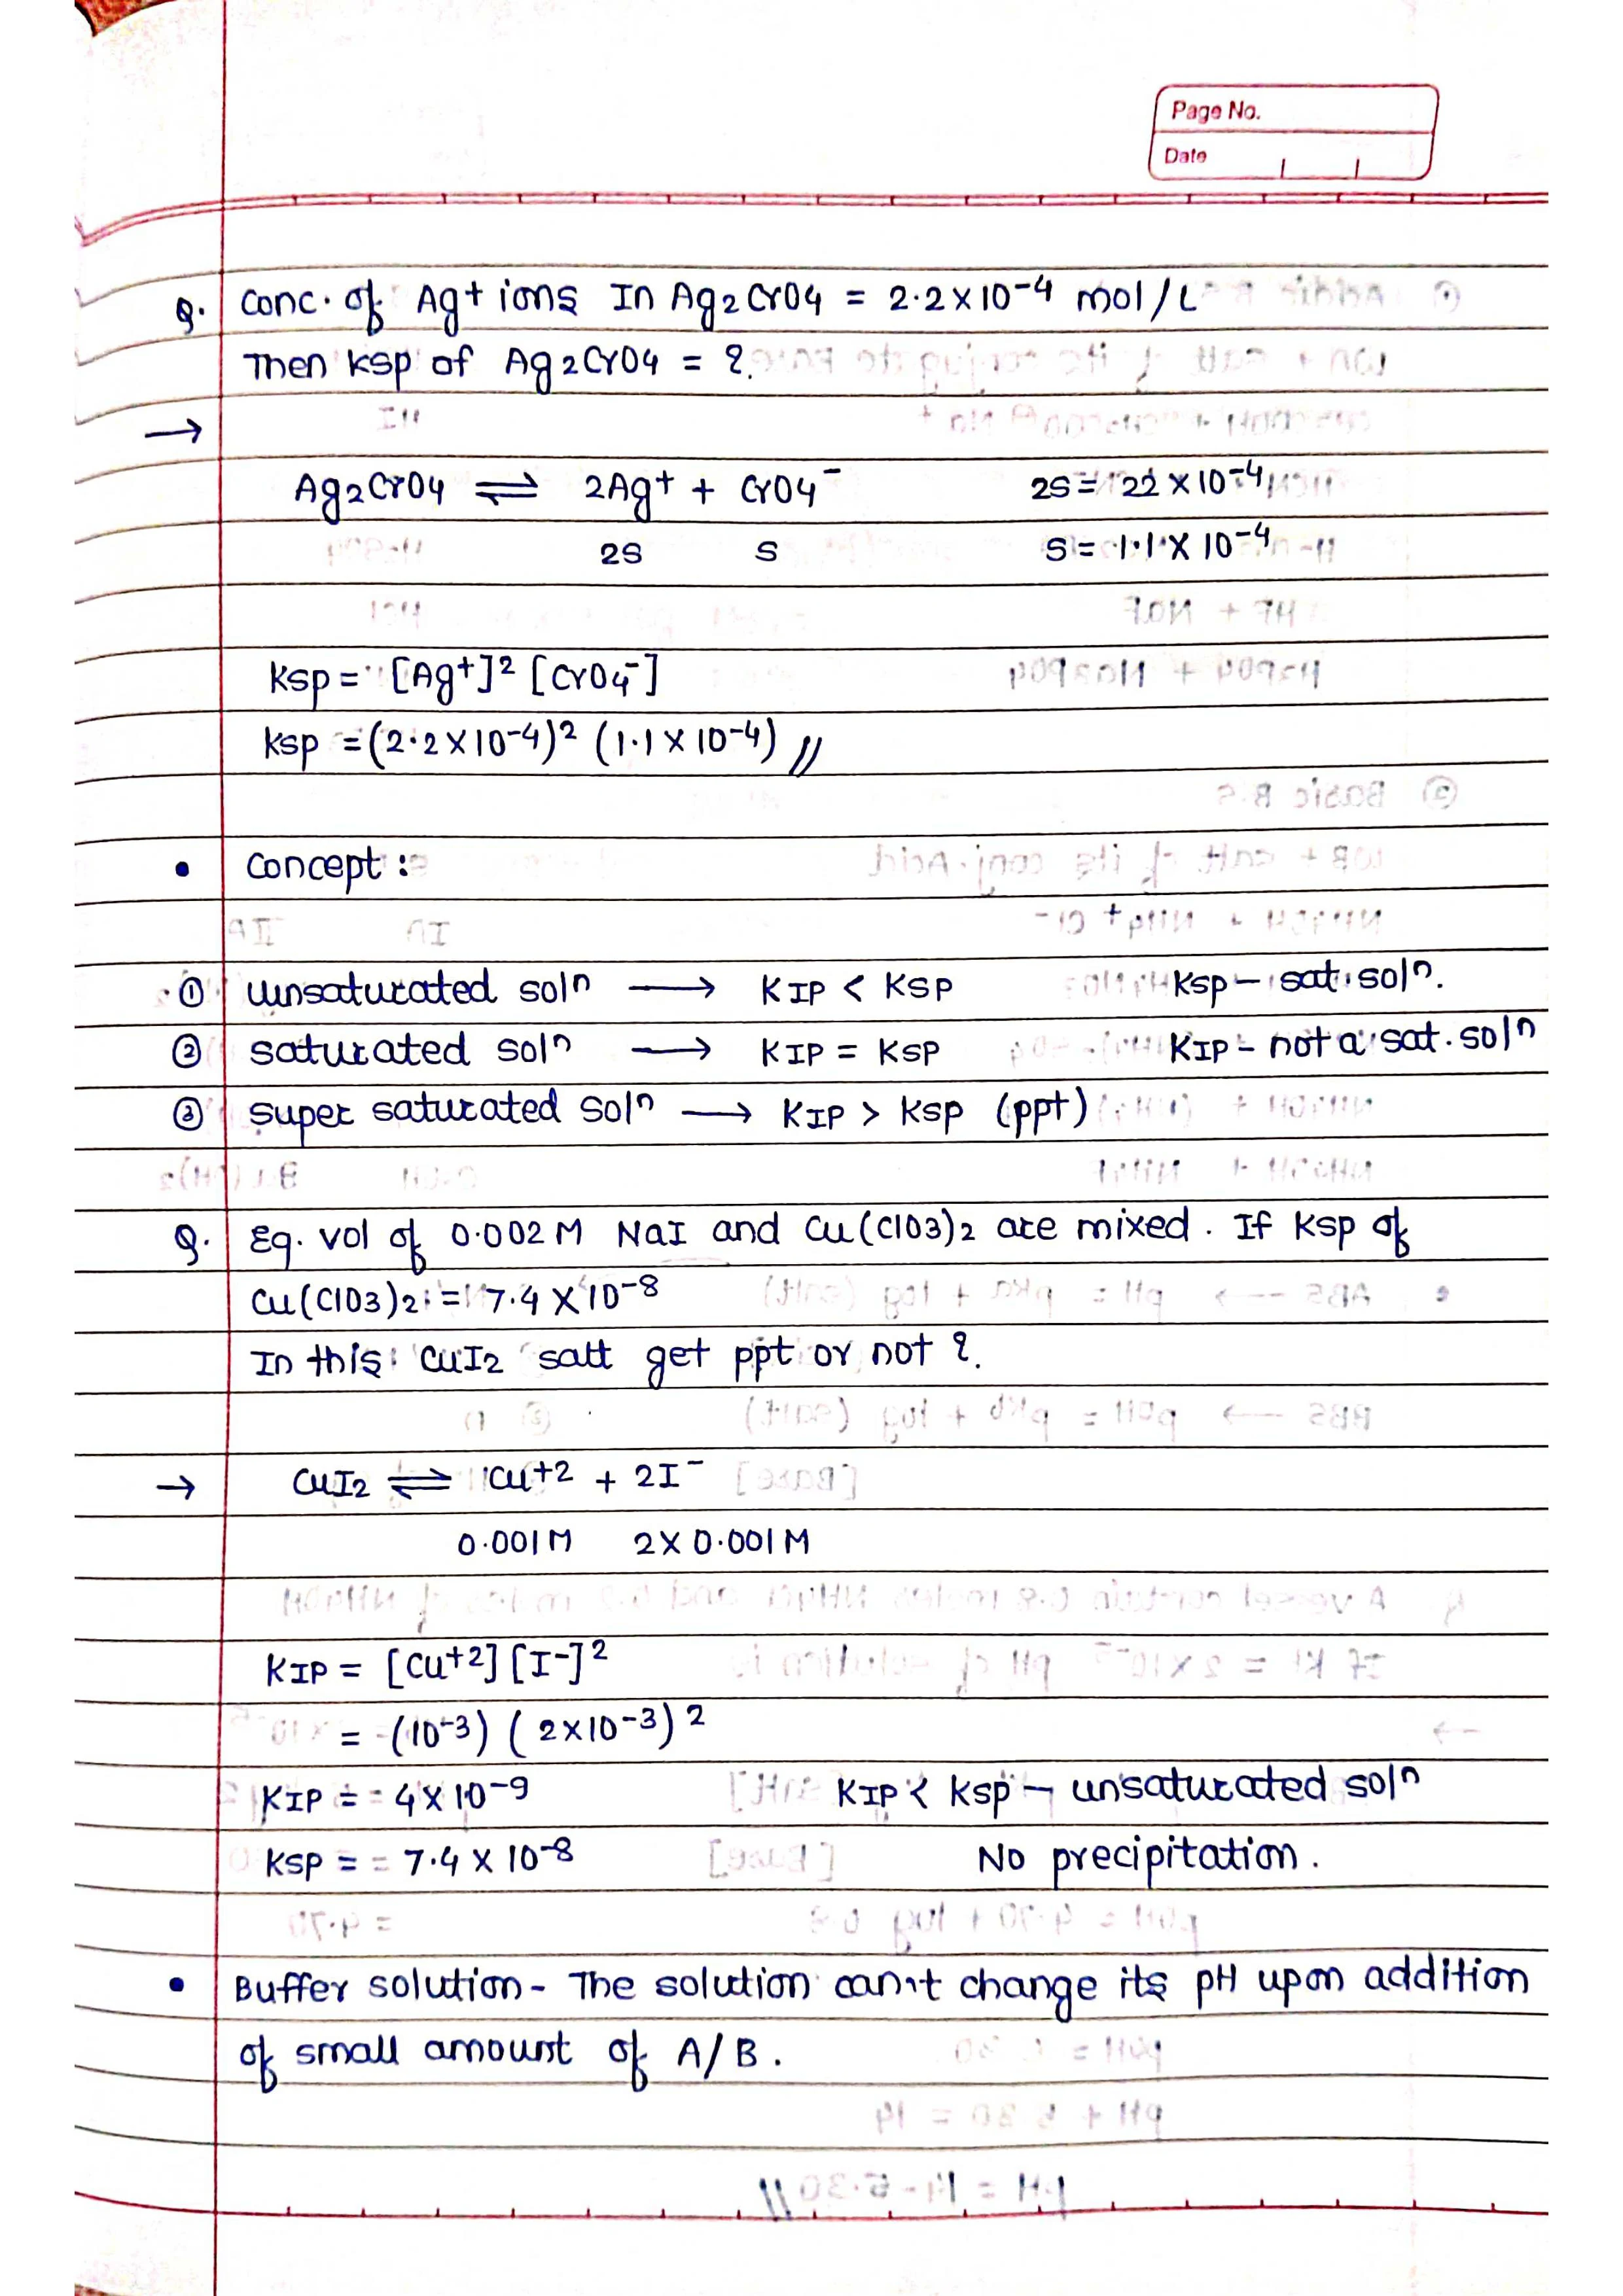 Page No.
Date
Q. Conc. of Ag+ ions In Ag2CrO4 = 2.2×10-4 mol/L
Then ksp of Ag2CrO4 = ?.
→
Ag2CrO4 ⇌ 2Ag+ + CrO4- 2S = 22 × 10-4
2S S S = 1.1 × 10-4
Ksp = [Ag+]2 [CrO4-]
Ksp = (2.2×10-4)2 (1.1×10-4) //
• Concept :
① unsaturated soln → KIP < KSP Ksp - sat. soln.
② saturated soln → KIP = KSP KIP - not a sat. soln
③ super saturated soln → KIP > Ksp (ppt)
Q. Eq. vol of 0.002M NaI and Cu(ClO3)2 are mixed. If Ksp of
Cu(ClO3)2 = 7.4 × 10-8
In this CuI2 satt get ppt or not ?.
→ CuI2 ⇌ Cu+2 + 2I-
0.001M 2×0.001M
KIP = [Cu+2] [I-]2
= (10-3) (2×10-3)2
KIP = 4×10-9 KIP < Ksp - unsaturated soln
Ksp = 7.4 × 10-8 No precipitation.
• Buffer solution - The solution can't change its pH upon addition
of small amount of A/B.